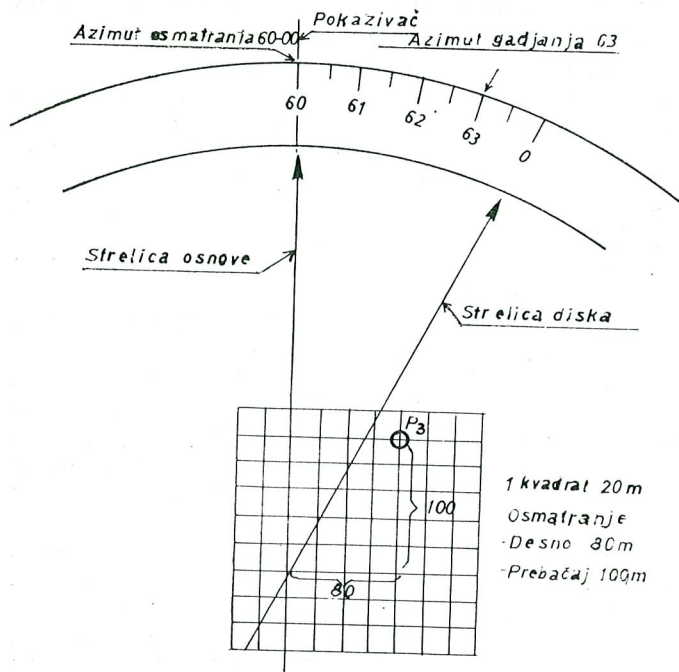 Pokazivač
Azimut osmatranja 60-00
Azimut gadjanja 63
60 61 62 63 0
Strelica osnove
Strelica diska
P3
100
80
1 kvadrat 20m
Osmatranje
-Desno 80m
-Prebačaj 100m